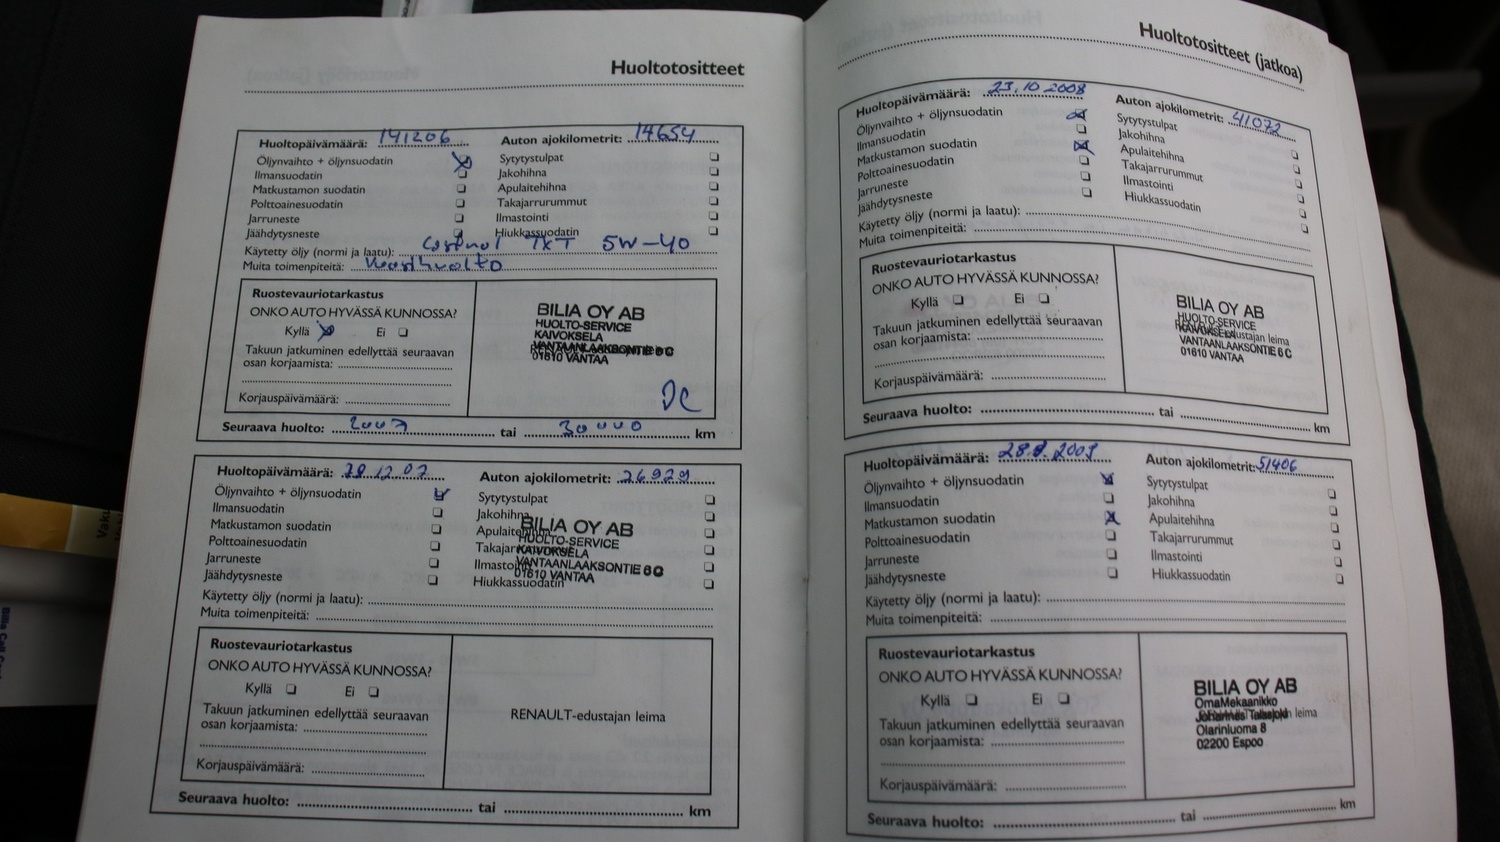 Huoltotositteet
Huoltopäivämäärä: 141206 Auton ajokilometrit: 14654
Öljynvaihto + öljynsuodatin Sytytystulpat
Ilmansuodatin Jakohihna
Matkustamon suodatin Apulaitehihna
Polttoainesuodatin Takajarrurummut
Jarruneste Ilmastointi
Jäähdytysneste Hiukkassuodatin
Käytetty öljy (normi ja laatu): Castrol TXT 5W-40
Muita toimenpiteitä: Vuosihuolto
Ruostevauriotarkastus
ONKO AUTO HYVÄSSÄ KUNNOSSA?
Kyllä Ei
Takuun jatkuminen edellyttää seuraavan
osan korjaamista:
Korjauspäivämäärä:
BILIA OY AB
HUOLTO-SERVICE
KAIVOKSELA
VANTAANLAAKSONTIE 6 C
01610 VANTAA
Seuraava huolto: 2007 tai 30000 km
Huoltopäivämäärä: 28.12.07 Auton ajokilometrit: 26929
Öljynvaihto + öljynsuodatin Sytytystulpat
Ilmansuodatin Jakohihna
Matkustamon suodatin Apulaitehihna
Polttoainesuodatin Takajarrurummut
Jarruneste Ilmastointi
Jäähdytysneste Hiukkassuodatin
BILIA OY AB
HUOLTO-SERVICE
KAIVOKSELA
VANTAANLAAKSONTIE 6 C
01610 VANTAA
Käytetty öljy (normi ja laatu):
Muita toimenpiteitä:
Ruostevauriotarkastus
ONKO AUTO HYVÄSSÄ KUNNOSSA?
Kyllä Ei
Takuun jatkuminen edellyttää seuraavan
osan korjaamista:
Korjauspäivämäärä:
RENAULT-edustajan leima
Seuraava huolto: tai km
Huoltotositteet (jatkoa)
Huoltopäivämäärä: 23.10 2008 Auton ajokilometrit: 41072
Öljynvaihto + öljynsuodatin Sytytystulpat
Ilmansuodatin Jakohihna
Matkustamon suodatin Apulaitehihna
Polttoainesuodatin Takajarrurummut
Jarruneste Ilmastointi
Jäähdytysneste Hiukkassuodatin
Käytetty öljy (normi ja laatu):
Muita toimenpiteitä:
Ruostevauriotarkastus
ONKO AUTO HYVÄSSÄ KUNNOSSA?
Kyllä Ei
Takuun jatkuminen edellyttää seuraavan
osan korjaamista:
Korjauspäivämäärä:
BILIA OY AB
HUOLTO-SERVICE
KAIVOKSELA edustajan leima
VANTAANLAAKSONTIE 6 C
01610 VANTAA
Seuraava huolto: tai km
Huoltopäivämäärä: Auton ajokilometrit: 51406
Öljynvaihto + öljynsuodatin Sytytystulpat
Ilmansuodatin Jakohihna
Matkustamon suodatin Apulaitehihna
Polttoainesuodatin Takajarrurummut
Jarruneste Ilmastointi
Jäähdytysneste Hiukkassuodatin
Käytetty öljy (normi ja laatu):
Muita toimenpiteitä:
Ruostevauriotarkastus
ONKO AUTO HYVÄSSÄ KUNNOSSA?
Kyllä Ei
Takuun jatkuminen edellyttää seuraavan
osan korjaamista:
Korjauspäivämäärä:
BILIA OY AB
OmaMekaanikko
Johannes leima
Olarinluoma 8
02200 Espoo
Seuraava huolto: tai km